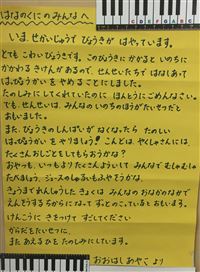 はなのくにの みんなへ
いま、せかいじゅうで びょうきが はやっています。
とても こわい びょうきです。このびょうきに かかると いのちに
かかわる きけんが あるので、せんせいたちで はなしあって
はっぴょうかいを やめることにしました。
たのしみに してくれていたのに ほんとうに ごめんなさい。
でも、せんせいは、みんなの いのちのほうが たいせつだと
おもいました。
また、びょうきの しんぱいが なくなったら たのしい
はっぴょうかいを やりましょう。こんどは、やくしゃんには
たくさん おしごとをしてもらおうかな?
おやつも、いつもより たくさんようい して みんなで むしゃむしゃ
たべましょう。ジュースの しるいも ふやそうかな。
きょうまで れんしゅうした きょくは みんなの おなかのなかで
えんそうする ちからに なって ずっとのこっていると おもいます。
けんこうに きをつけて すごしてください
からだを たいせつに。
また あえるかを たのしみにしています。
おおはし あやこ より